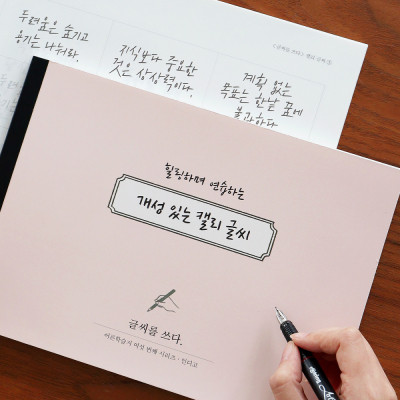 두려움은 숨기고
용기는 나눠라.
지식보다 중요한
것은 상상력이다.
계획 없는
목표는 한낱 꿈에
불과하다
힐링하며 연습하는
개성 있는 캘리 글씨
글씨를 쓰다.
어른학습지 여섯 번째 시리즈 · 인디고